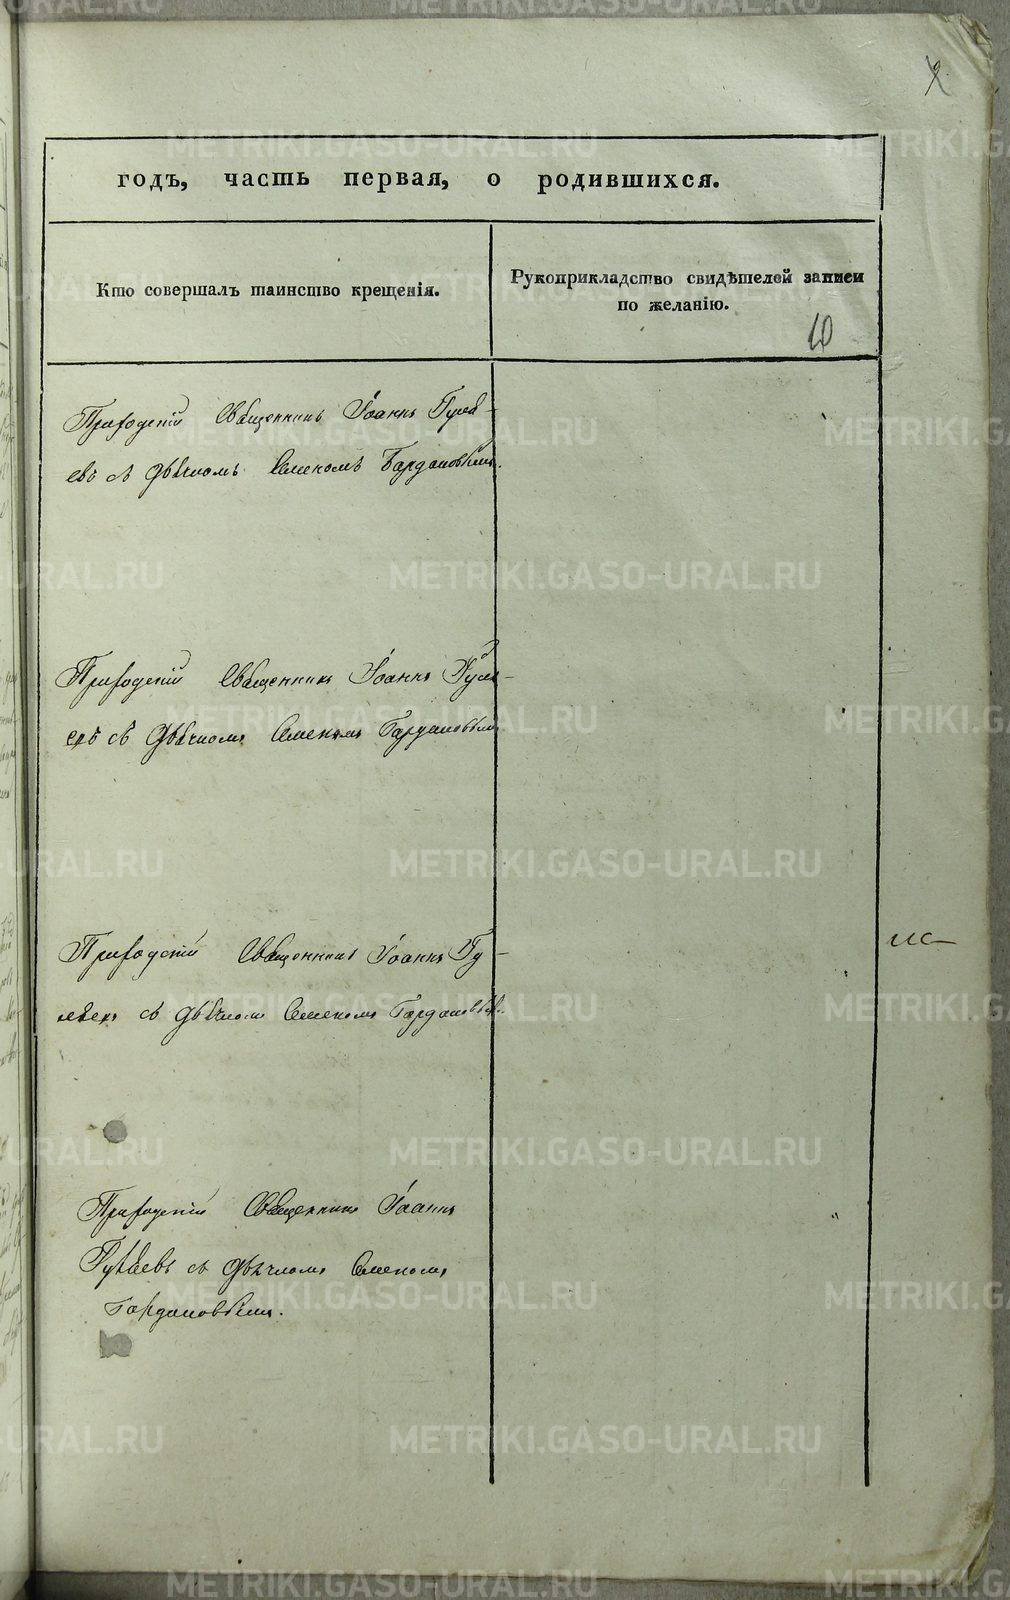 2
годъ, часть первая, о родившихся.
Кто совершалъ таинство крещенія.
Рукоприкладство свидѣтелей записи
по желанію.
10
Приходскій Священникъ Іоаннъ Гуля-
евъ съ дьячкомъ Семеномъ Бардановымъ.
Приходскій Священникъ Іоаннъ Гуля-
евъ съ Дьячкомъ Семеномъ Гардановымъ
Приходскій Священникъ Іоаннъ Гу-
ляевъ съ дьячкомъ Семеномъ Гардановымъ.
Приходскій Священникъ Іоаннъ
Гуляевъ съ Дьячкомъ Семеномъ
Гардановымъ.
METRIKI.GASO-URAL.RU